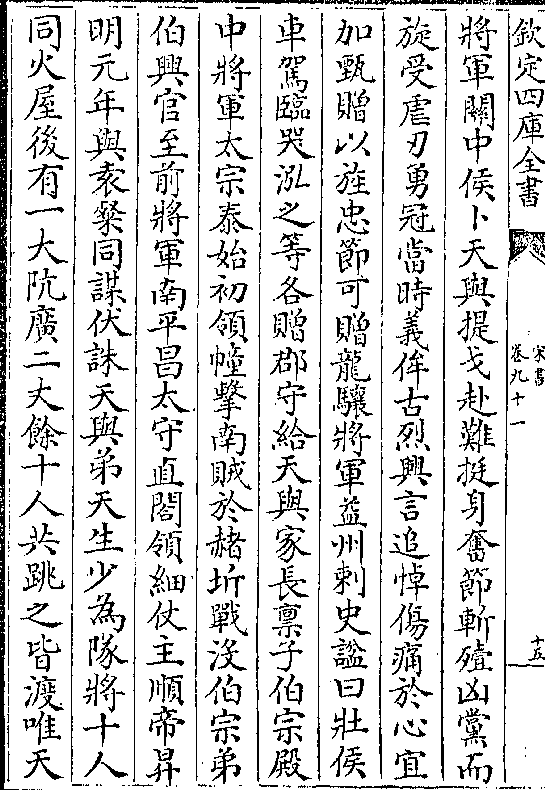 欽定四庫全書
宋書
卷九十一
十五
將軍關中侯卜天與提戈赴難挺身奮節斬殪凶黨而
旋受虐刃勇冠當時義侔古烈興言追悼傷痛於心宜
加甄贈以旌忠節可贈龍驤將軍益州刺史諡曰壯侯
車駕臨哭泓之等各贈郡守給天與家長稟子伯宗殿
中將軍太宗泰始初領幢擊南賊於赭圻戰没伯宗弟
伯興官至前將軍南平昌太守直閤領細仗主順帝昇
明元年與袁粲同謀伏誅天與弟天生少為隊將十人
同火屋後有一大阬廣二丈餘十人共跳之皆渡唯天